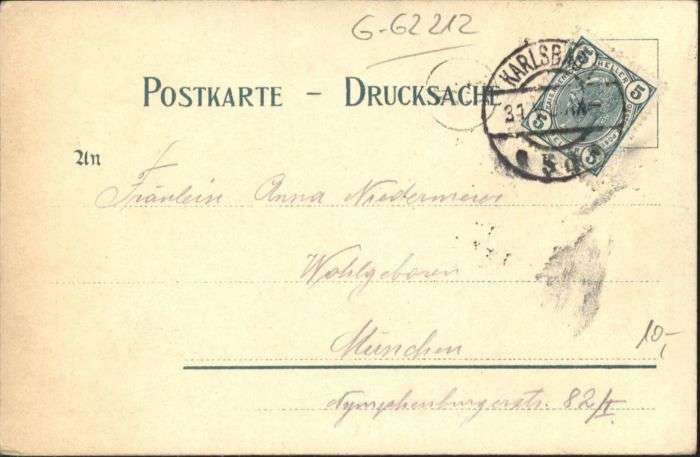 G-62212
POSTKARTE – DRUCKSACHE
KARLSBAD
5
5
5
5
KAISER
An
Fräulein Anna Niedermeier
Wohlgeboren
München
10,-
Nymphenburgerstr. 82/I